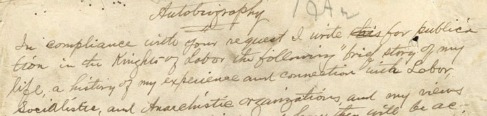 Autobiography
In compliance with your request I write this for publica
tion in the Knights of Labor the following "brief story of my
life, a history of my experience and connection" with Labor
Socialistic, and Anarchistic organizations, and my views